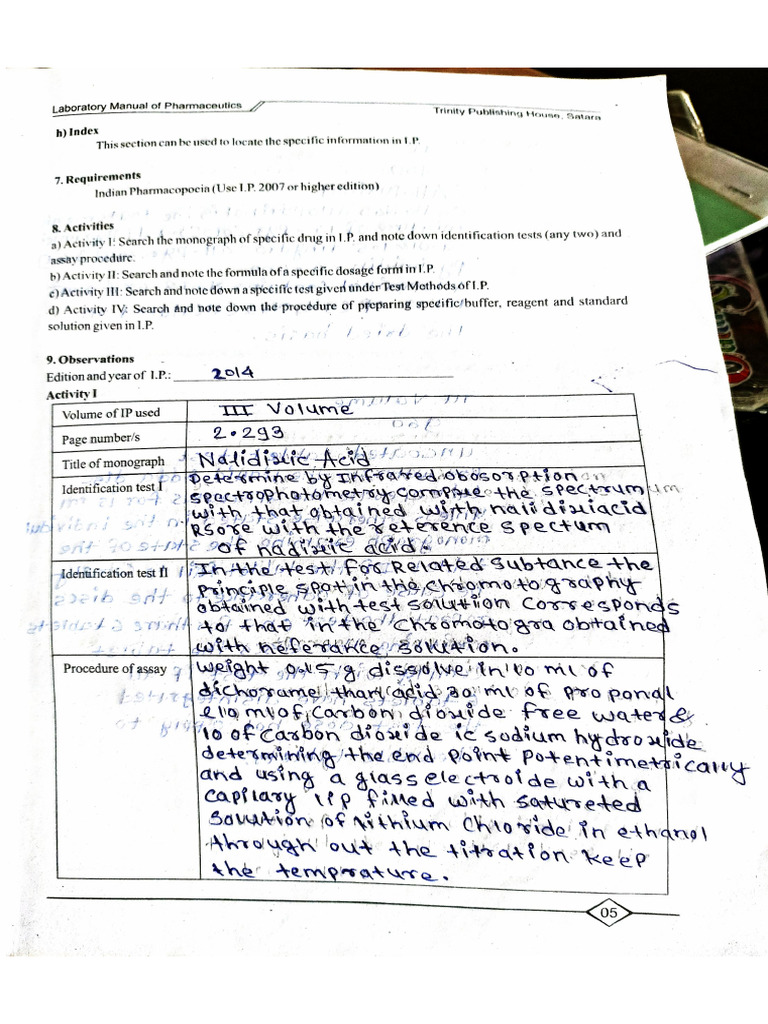 Laboratory Manual of Pharmaceutics
Trinity Publishing House, Satara
h) Index
This section can be used to locate the specific information in I.P.
7. Requirements
Indian Pharmacopoeia (Use I.P. 2007 or higher edition)
8. Activities
a) Activity I: Search the monograph of specific drug in I.P. and note down identification tests (any two) and
assay procedure.
b) Activity II: Search and note the formula of a specific dosage form in I.P.
c) Activity III: Search and note down a specific test given under Test Methods of I.P.
d) Activity IV: Search and note down the procedure of preparing specific buffer, reagent and standard
solution given in I.P.
9. Observations
Edition and year of I.P.: 2014
Activity I
Volume of IP used III Volume
Page number/s 2.293
Title of monograph Nalidixic Acid
Identification test I Determine by Infrared obosorption
spectrophotometry compare the spectrum
with that obtained with nalidixiacid
Rsore with the reference spectum
of nadixic acid.
Identification test II In the test for Related subtance the
principle spot in the chromotography
obtained with test solution corresponds
to that in the chromotogra obtained
with reference solution.
Procedure of assay Weight 0.15 g dissolve in 10 ml of
dichorame than acid 30 ml of proponal
10 ml of carbon dioxide free water &
10 of carbon dioxide ic sodium hydroxide
determining the end point potentimetrically
and using a glass electroide with a
capilary tip filled with satureted
solution of lithium chloride in ethanol
through out the titration keep
the temprature.
05